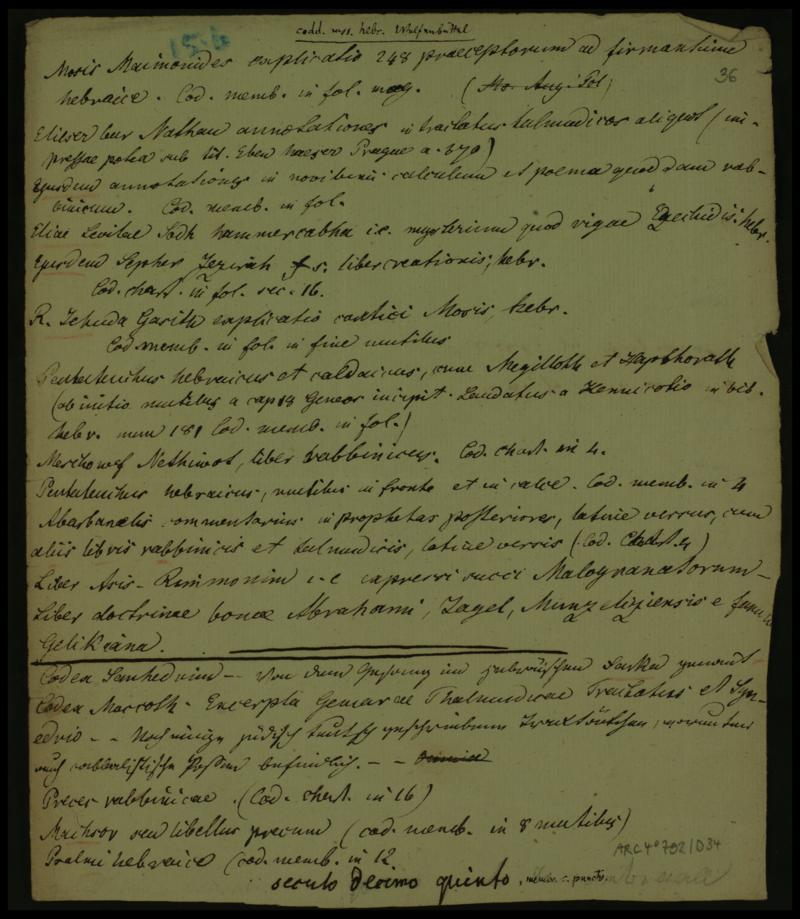 codd. mss. hebr. Wulfenbüttel
36
Mosis Maimonides explicatio 248 praeceptorum ad firmantium
hebraice. Cod. memb. in fol. mag. (Ms. Aug. fol)
Elieser bar Nathan annotationes in tractatus talmudicos aliquot (im-
pressae postea sub tit. Eben haeser Prague a. 370)
Ejusdem annotationes in calculum et poema quoddam rab-
binicum. Cod. memb. in fol.
Eliae Levitae Sodh hammercabha i.e. mysterium quod vigae Ezechielis. hebr.
Ejusdem Sepher Jezirah s. liber creationis, hebr.
Cod. chart. in fol. sec. 16.
R. Jehuda explicatio cantici Mosis, hebr.
Cod memb. in fol. in fine mutilus
Pentateuchus hebraicus et caldaicus, cum Megilloth et Haphthorath
(ab initio mutilus a cap 18 Geneos incipit. Laudatus a Kennicotio in bibl.
hebr. num 181 Cod. memb. in fol.)
Meschowef Nethiwot, liber rabbinicus. Cod. chart. in 4.
Pentateuchus hebraicus, mutilus in fronte et in calce. Cod. memb. in 4
Abarbanelis commentarius in prophetas posteriores, latine versus, cum
aliis libris rabbinicis et talmudicis, latine versis (Cod. Chart. 4)
Liber Asis-Rimmonim i-e expressi succi Malogranatorum-
Liber doctrinae bonae Abrahami, Jagel, e
Codex Sanhedrin - Von dem
Codex Maccoth - Excerpta Gemarae Thalmudicae Tractatus et Syn-
edrio - - Noch einige jüdisch teutsch geschriebene worunter
auch cabbalistische Possen befindlich. - -
Preces rabbinicae. (Cod. chart. in 16)
Machsor seu libellus precum (cod. memb. in 8 mutilus)
Psalmi hebraice (cod. memb. in 12
ARC 4° 792/D34
seculo decimo quinto, membr. c. punctis